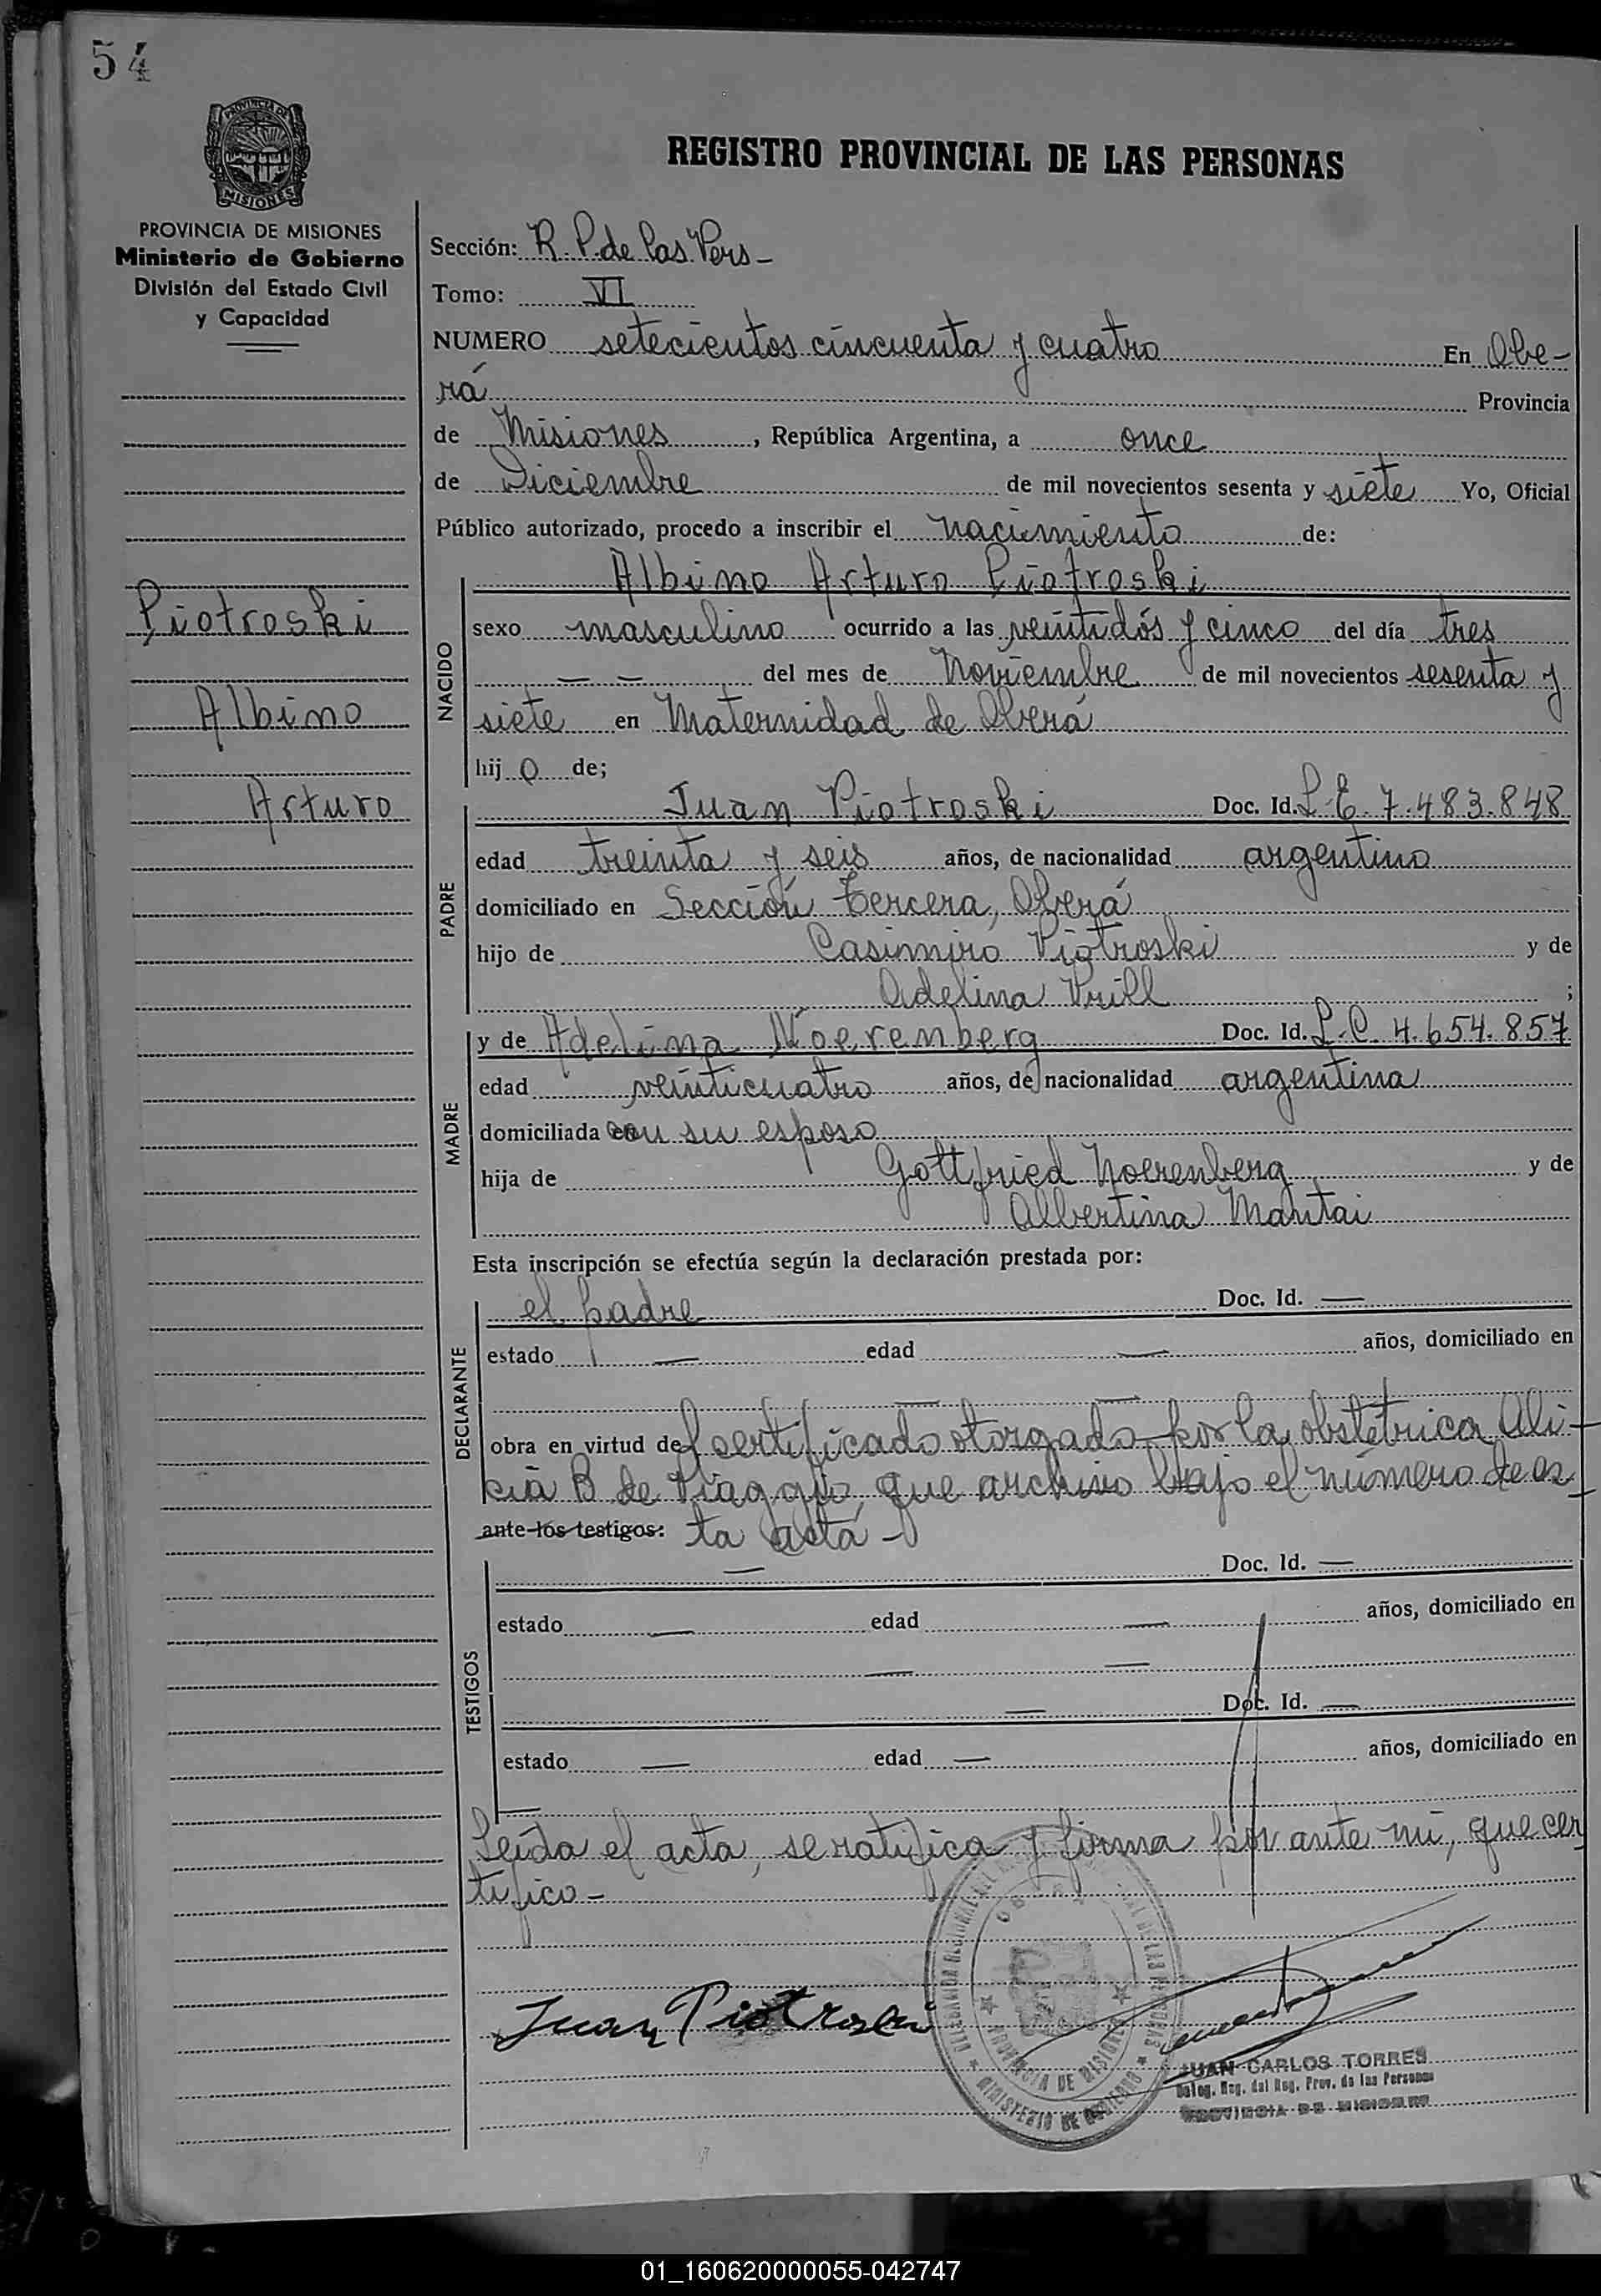 54
PROVINCIA DE MISIONES
REGISTRO PROVINCIAL DE LAS PERSONAS
PROVINCIA DE MISIONES
Ministerio de Gobierno
División del Estado Civil
y Capacidad
Piotroski
Albino
Arturo
Sección: R. P. de las Pers-
Tomo: VI
NUMERO setecientos cincuenta y cuatro En Obe-
rá Provincia
de Misiones, República Argentina, a once
de Diciembre de mil novecientos sesenta y siete Yo, Oficial
Público autorizado, procedo a inscribir el nacimiento de:
NACIDO
Albino Arturo Piotroski
sexo masculino ocurrido a las veintidós y cinco del día tres
— — del mes de Noviembre de mil novecientos sesenta y
siete en Maternidad de Oberá
hij o de;
PADRE
Juan Piotroski Doc. Id. L.E. 7.483.848
edad treinta y seis años, de nacionalidad argentino
domiciliado en Sección Tercera, Oberá
hijo de Casimiro Piotroski y de
Adelina Prill ;
MADRE
y de Adelina Noerenberg Doc. Id. L.C. 4.654.857
edad veinticuatro años, de nacionalidad argentina
domiciliada con su esposo
hija de Gottfried Noerenberg y de
Albertina Mantai
Esta inscripción se efectúa según la declaración prestada por:
DECLARANTE
el padre Doc. Id. —
estado — edad — años, domiciliado en
— —
obra en virtud del certificado otorgado por la obstétrica Ali-
cia B de Piaggio, que archivo bajo el número de es-
ante los testigos: ta acta -
TESTIGOS
— Doc. Id. —
estado — edad — años, domiciliado en
— —
— Doc. Id. —
estado — edad — años, domiciliado en
—
Leída el acta, se ratifica y firma por ante mi, que cer
tifico -
Juan Piotroski
PROVINCIA DE MISIONES
MINISTERIO DE GOBIERNO
JUAN CARLOS TORRES
Deleg. Reg. del Reg. Prov. de las Personas
PROVINCIA DE MISIONES
01_160620000055-042747